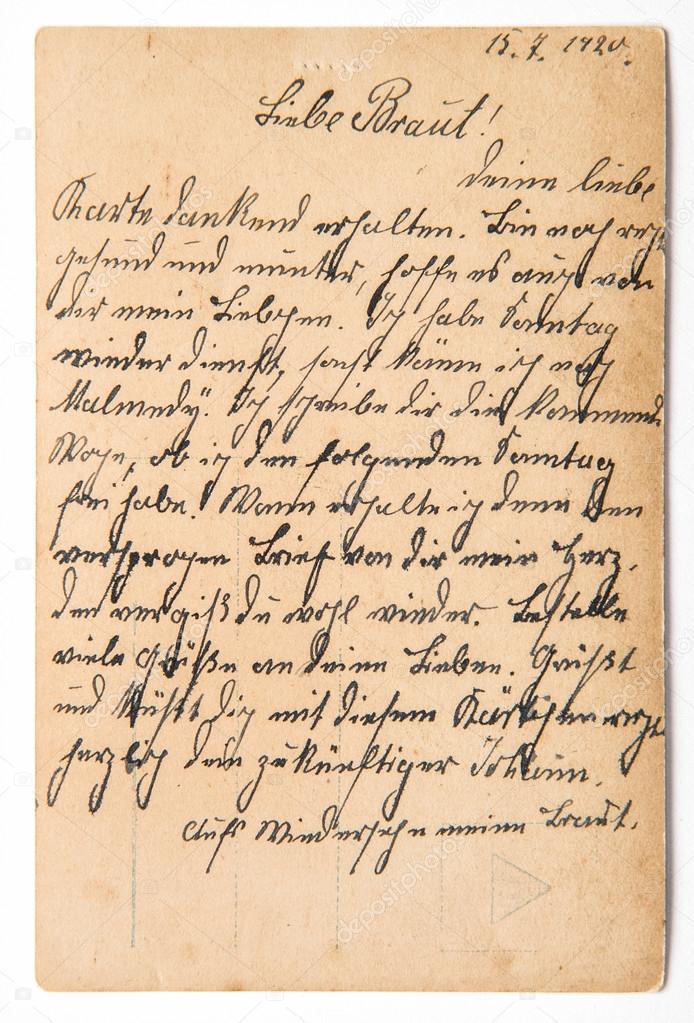 15.7.1920.
Liebe Braut!
Deine liebe
Karte dankend erhalten. Bin noch recht
gesund und munter, hoffe es auch von
dir mein Liebchen. Ich habe Sonntag
wieder dienst, sonst käme ich nach
Malmedy. Ich schreibe dir die kommende
Woche, ob ich den folgenden Sonntag
frei habe. Wann erhalte ich denn den
versprochen Brief von dir mein Herz,
den vergißt du wohl wieder. Bestelle
viele Grüße an deine Lieben. Grüßt
und küßt dich mit diesem Kärtchen recht
herzlich dein zukünftiger Johann.
Aufs Wiedersehn meine Braut.